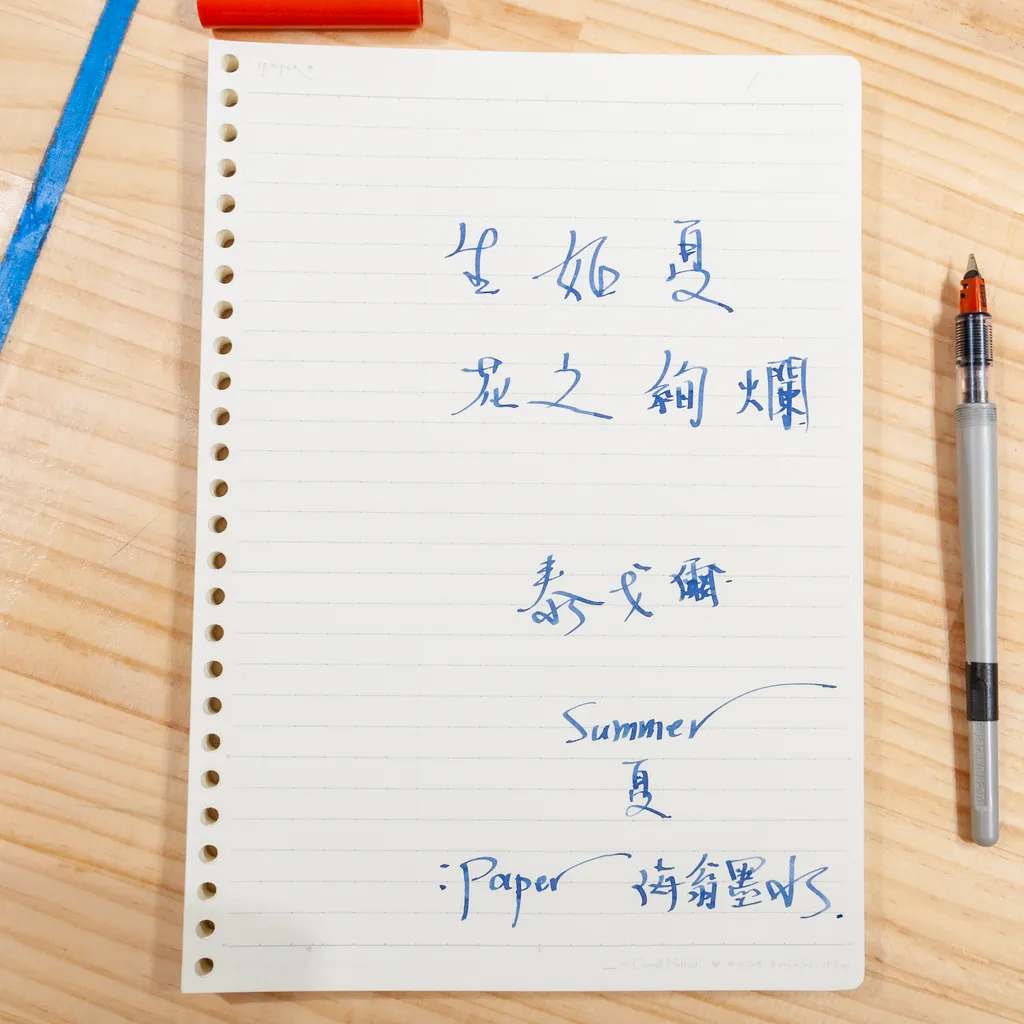 生如夏
花之絢爛
泰戈爾
Summer
夏
:Paper 海翁墨水.